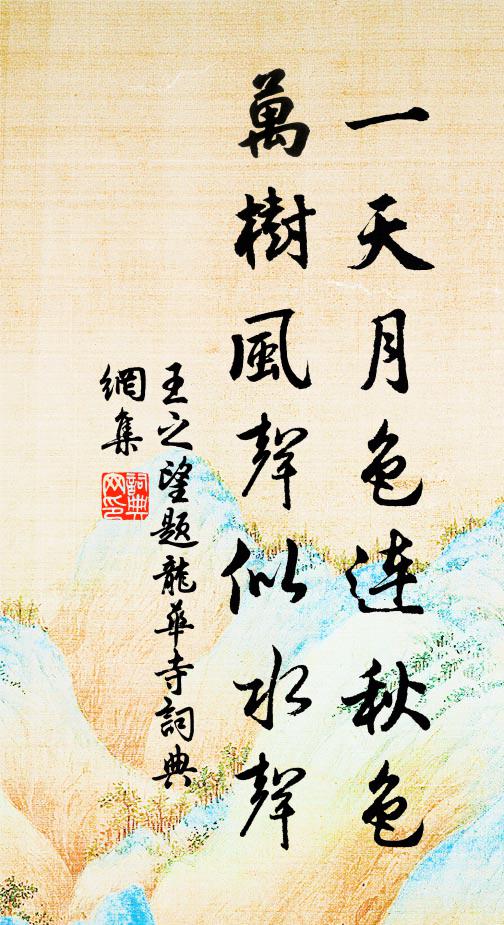 一天月色連秋色
萬樹風聲似水聲
王之望題龍華寺詞典
網集
詞典
网印